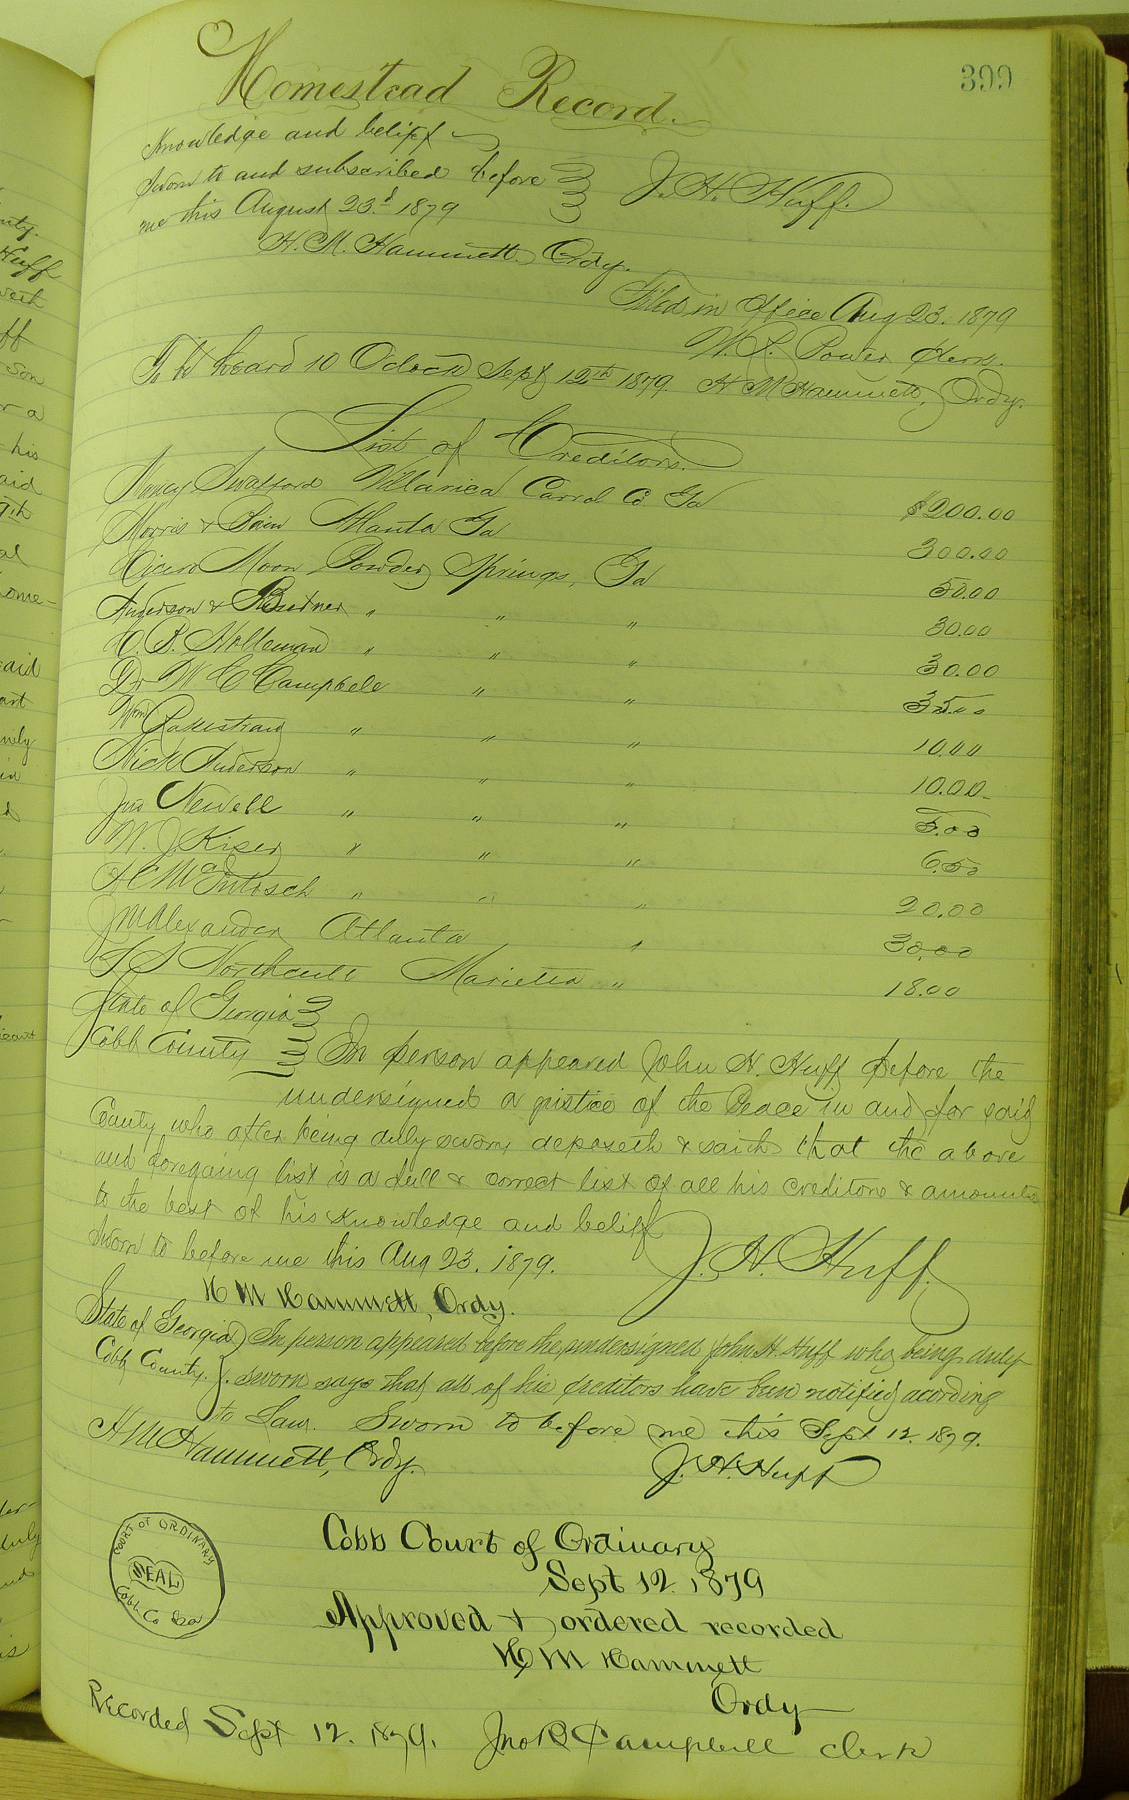 399
Homestead Record.
Knowledge and belief
Sworn to and subscribed before
me this August 23d 1879
J. H. Huff.
H. M. Hammett Ordy.
Filed in Office Aug 23. 1879
W. R. Power Clerk.
To be heard 10 Oclock Sept 12th 1879. H M Hammett, Ordy.
List of Creditors.
Nancy Swafford Villarica Carrol Co Ga $200.00
Morris & Atlanta Ga 300.00
Cicero Moon Powder Springs, Ga 50.00
Anderson & Butner " " " 30.00
Holleman " " " 30.00
Dr W C Campbell " " 35.00
Wm Rakestraw " " " 10.00
Nick Anderson " " " 10.00
Jno Newell " " " 5.00
W. J. Kiser " " " 6.50
McIntosch " " " 20.00
J M Alexander Atlanta " 30.00
Northcutt Marietta " 18.00
State of Georgia
Cobb County In person appeared John H. Huff before the
undersigned a justice of the Peace in and for said
County who after being duly sworn deposeth & saith that the above
and foregoing list is a full & correct list of all his creditors & amounts
to the best of his knowledge and belief
Sworn to before me this Aug 23. 1879.
J. H. Huff.
H M Hammett, Ordy.
State of Georgia In person appeared before the undersigned John H. Huff who being duly
Cobb County. sworn says that all of his creditors have been notified acording
to Law. Sworn to before me this Sept 12. 1879.
H M Hammett, Ordy.
J. H. Huff
COURT OF ORDINARY
SEAL
Cobb Co Ga
Cobb Court of Ordinary
Sept 12. 1879
Approved & ordered recorded
H M Hammett
Ordy
Recorded Sept 12. 1879. Jno R Campbell clerk